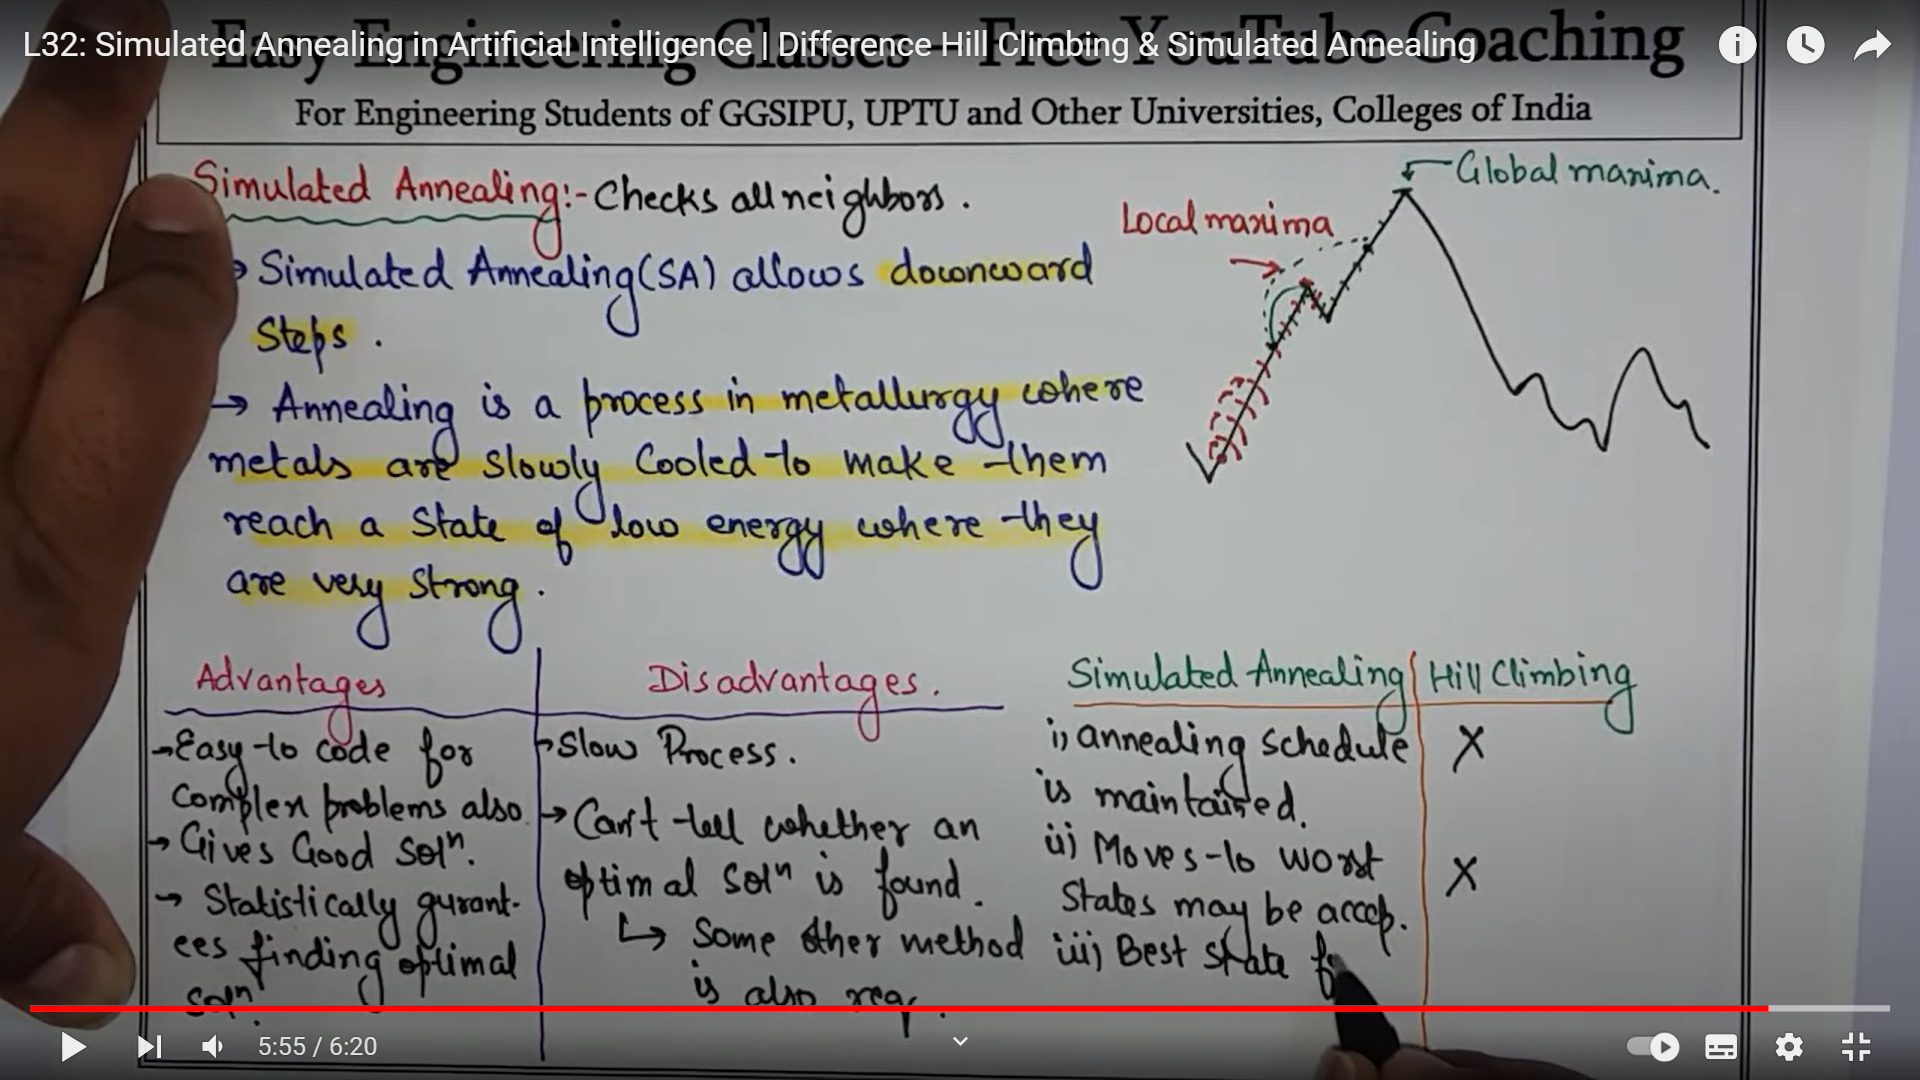 Easy Engineering Classes – Free YouTube Coaching
L32: Simulated Annealing in Artificial Intelligence | Difference Hill Climbing & Simulated Annealing
For Engineering Students of GGSIPU, UPTU and Other Universities, Colleges of India
Simulated Annealing:- Checks all neighbors.
→ Simulated Annealing(SA) allows downward
Steps.
→ Annealing is a process in metallurgy where
metals are slowly Cooled to make them
reach a State of low energy where they
are very strong.
Global maxima.
Local maxima
Advantages
→Easy to code for
Complex problems also
→ Gives Good Solⁿ.
→ Statistically gurant-
ees finding optimal
Solⁿ.
Disadvantages.
→Slow Process.
→ Can't tell whether an
optimal Solⁿ is found.
↳ Some other method
is also req.
Simulated Annealing | Hill Climbing
i) annealing schedule X
is maintained.
ii) Moves to worst X
States may be accep.
iii) Best state f
5:55 / 6:20